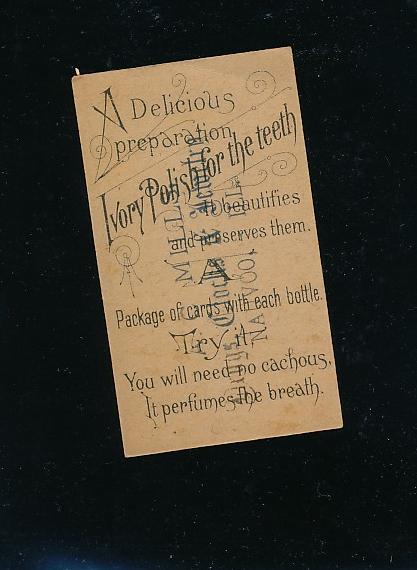 A Delicious
preparation
Ivory Polish for the teeth
It beautifies
and preserves them.
A
Package of cards with each bottle.
Try it,
You will need no cachous,
It perfumes the breath.
MILL
NAUVOO, ILL.